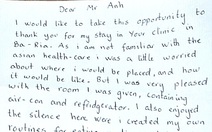 Dear Mr Anh
I would like to take this opportunity to
thank you for my stay in Your clinic in
Ba-Ria. As i am not familiar with the
asian health-care i was a little worried
about where i would be placed, and how
it would be like. But i was very pleased
with the room I was given, containing
air-con and refridgerator. I also enjoyed
the silence here were i created my own
routines for